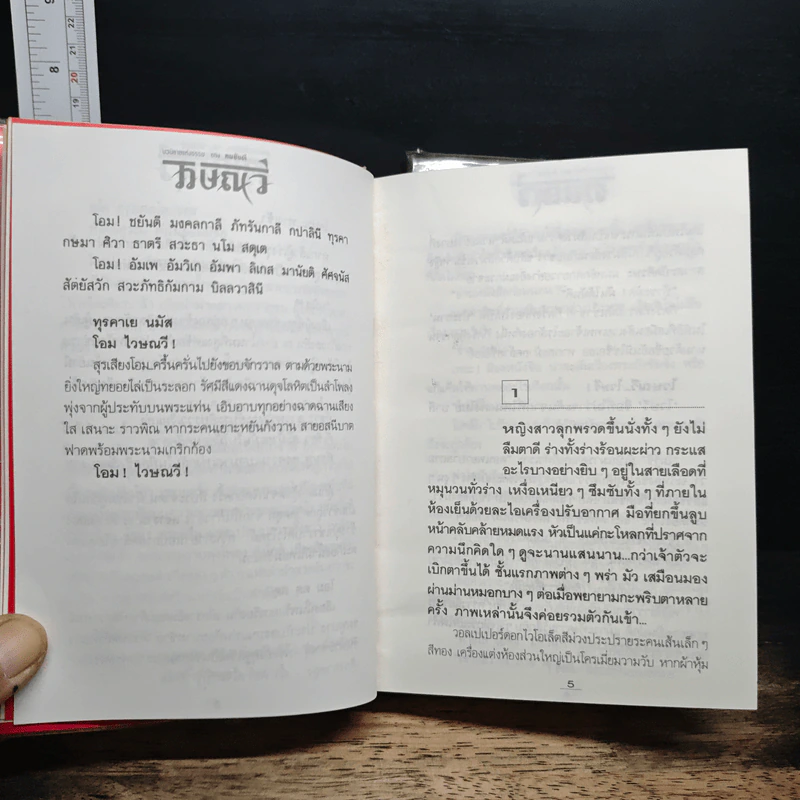 9
8
21
20
19
ไวษณวี
โอม! ชยันตี มงคลกาลี ภัทรันกาลี กปาลินี ทุรคา
กษมา ศิวา ธาตรี สวะธา นโม สตุเต
โอม! อัมเพ อัมวิเก อัมพา ลิเกส มานัยติ ศัศจนัส
สัตยัสวัก สวะภัทธิกัมกาม ปิลลวาสินี
ทุรคาเย นมัส
โอม ไวษณวี!
สุรเสียงโอม..ครื้นครั่นไปยังขอบจักรวาล ตามด้วยพระนาม
ยิ่งใหญ่ทยอยไล่เป็นระลอก รัศมีสีแดงฉานดุจโลหิตเป็นลำโพลง
พุ่งจากผู้ประทับบนพระแท่น เอิบอาบทุกอย่างฉาดฉานเสียง
ใส เสนาะ ราวพิณ หากระคนเยาะหยันกังวาน สายอสนีบาต
ฟาดพร้อมพระนามเกริกก้อง
โอม! ไวษณวี!
1
หญิงสาวลุกพรวดขึ้นนั่งทั้ง ๆ ยังไม่
ลืมตาดี ร่างทั้งร่างร้อนผะผ่าว กระแส
อะไรบางอย่างยิบ ๆ อยู่ในสายเลือดที่
หมุนวนทั่วร่าง เหงื่อเหนียว ๆ ซึมซับทั้ง ๆ ที่ภายใน
ห้องเย็นด้วยละไอเครื่องปรับอากาศ มือที่ยกขึ้นลูบ
หน้าคลับคล้ายหมดแรง หัวเป็นแค่กะโหลกที่ปราศจาก
ความนึกคิดใด ๆ ดูจะนานแสนนาน...กว่าเจ้าตัวจะ
เบิกตาขึ้นได้ ชั้นแรกภาพต่าง ๆ พร่า มัว เสมือนมอง
ผ่านม่านหมอกบาง ๆ ต่อเมื่อพยายามกะพริบตาหลาย
ครั้ง ภาพเหล่านั้นจึงค่อยรวมตัวกันเข้า...
วอลเปเปอร์ดอกไวโอเล็ตสีม่วงประปรายระคนเส้นเล็ก ๆ
สีทอง เครื่องแต่งห้องส่วนใหญ่เป็นโครเมี่ยมวามวับ หากผ้าหุ้ม
5